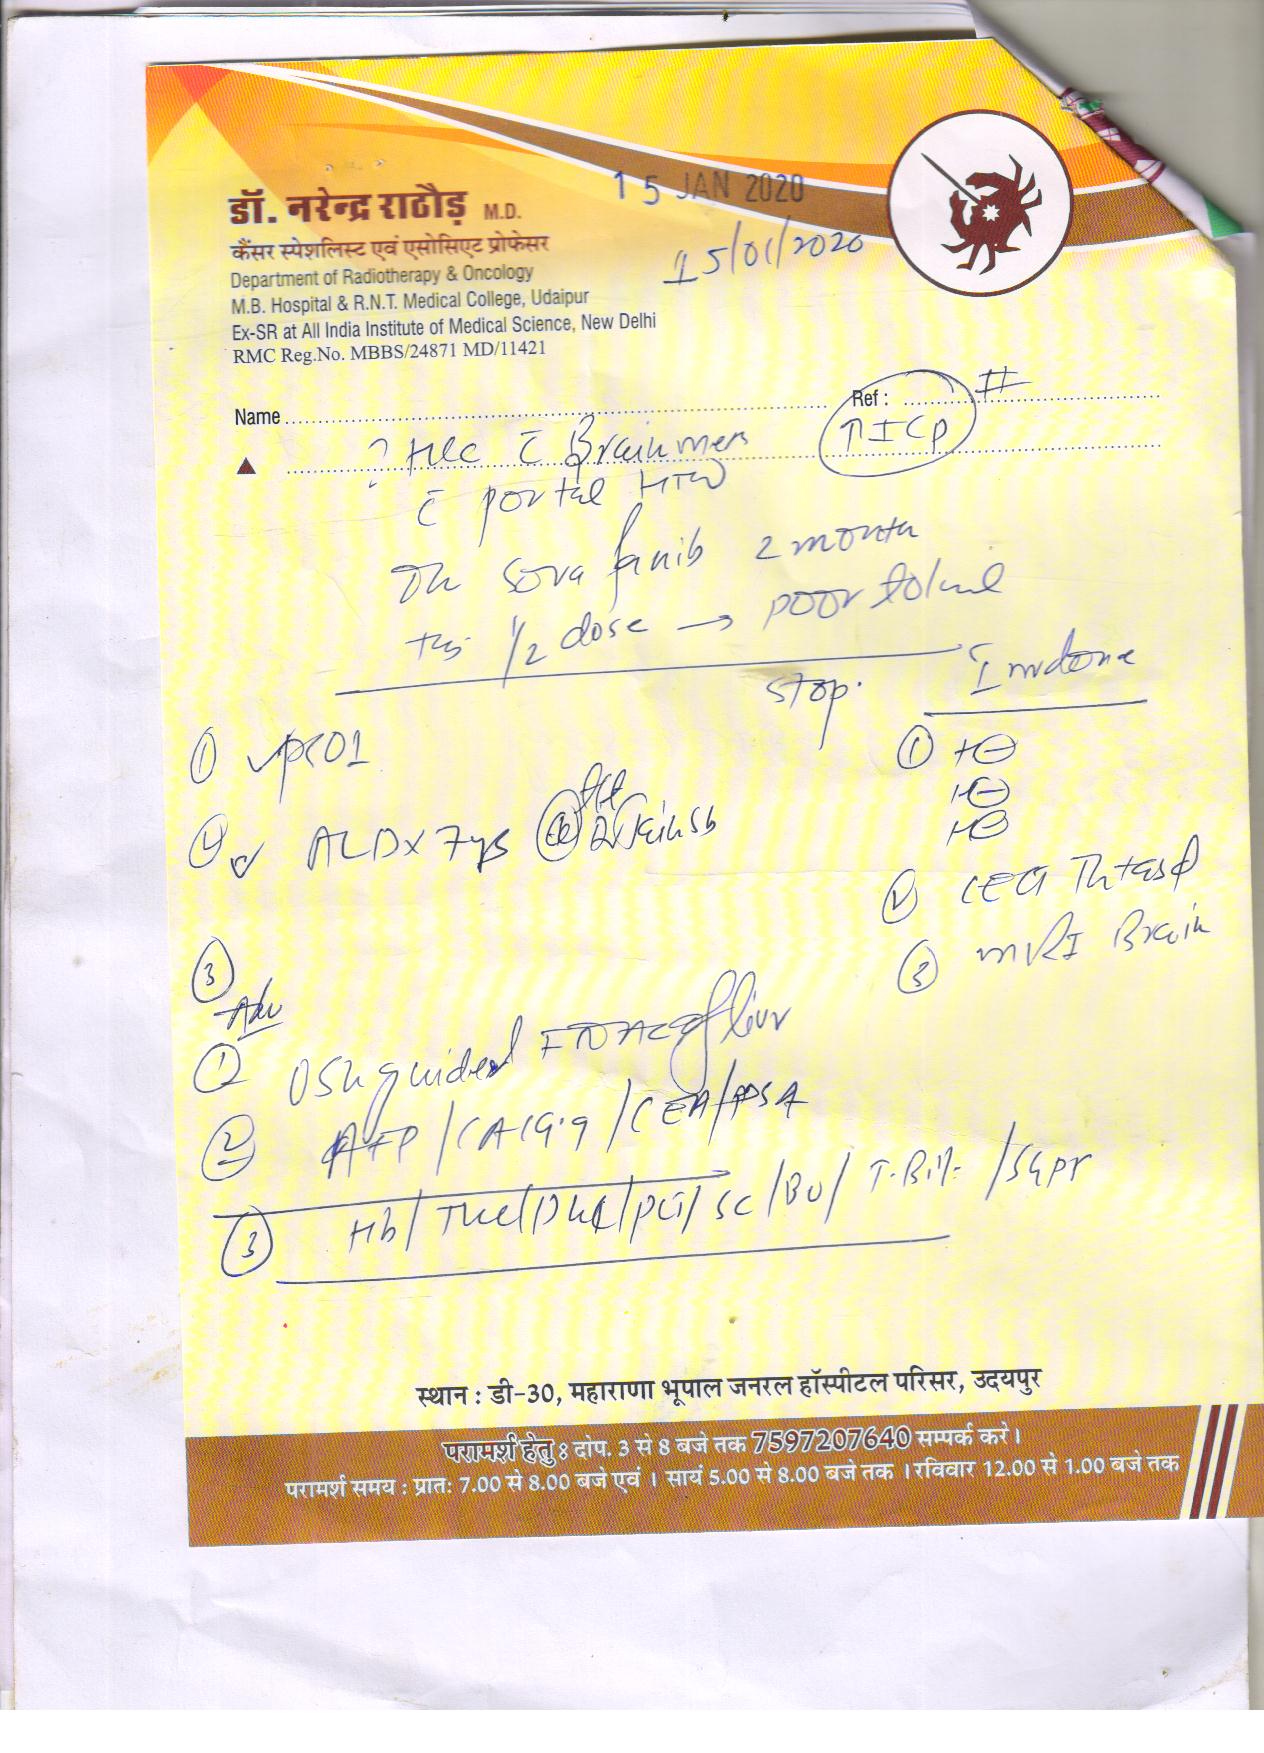 15 JAN 2020
15/01/2020
डॉ. नरेन्द्र राठौड़ M.D.
कैंसर स्पेशलिस्ट एवं एसोसिएट प्रोफेसर
Department of Radiotherapy & Oncology
M.B. Hospital & R.N.T. Medical College, Udaipur
Ex-SR at All India Institute of Medical Science, New Delhi
RMC Reg.No. MBBS/24871 MD/11421
Name Ref : #
↑ICP
? HCC c̄ Brain mets
c̄ portal HTN
On Sorafenib 2 month
1/2 dose → poor
stop.
①
① HΘ
HΘ
HΘ
②
②
③ MRI Brain
③
Adv
① USG guided FNAC of liver
② AFP/CA19.9/CEA/PSA
③ Hb/TLC/DLC/PLT/SC/BU/T.Bil/SGPT
स्थान : डी-30, महाराणा भूपाल जनरल हॉस्पीटल परिसर, उदयपुर
परामर्श हेतु : दोप. 3 से 8 बजे तक 7597207640 सम्पर्क करे।
परामर्श समय : प्रातः 7.00 से 8.00 बजे एवं । सायं 5.00 से 8.00 बजे तक । रविवार 12.00 से 1.00 बजे तक